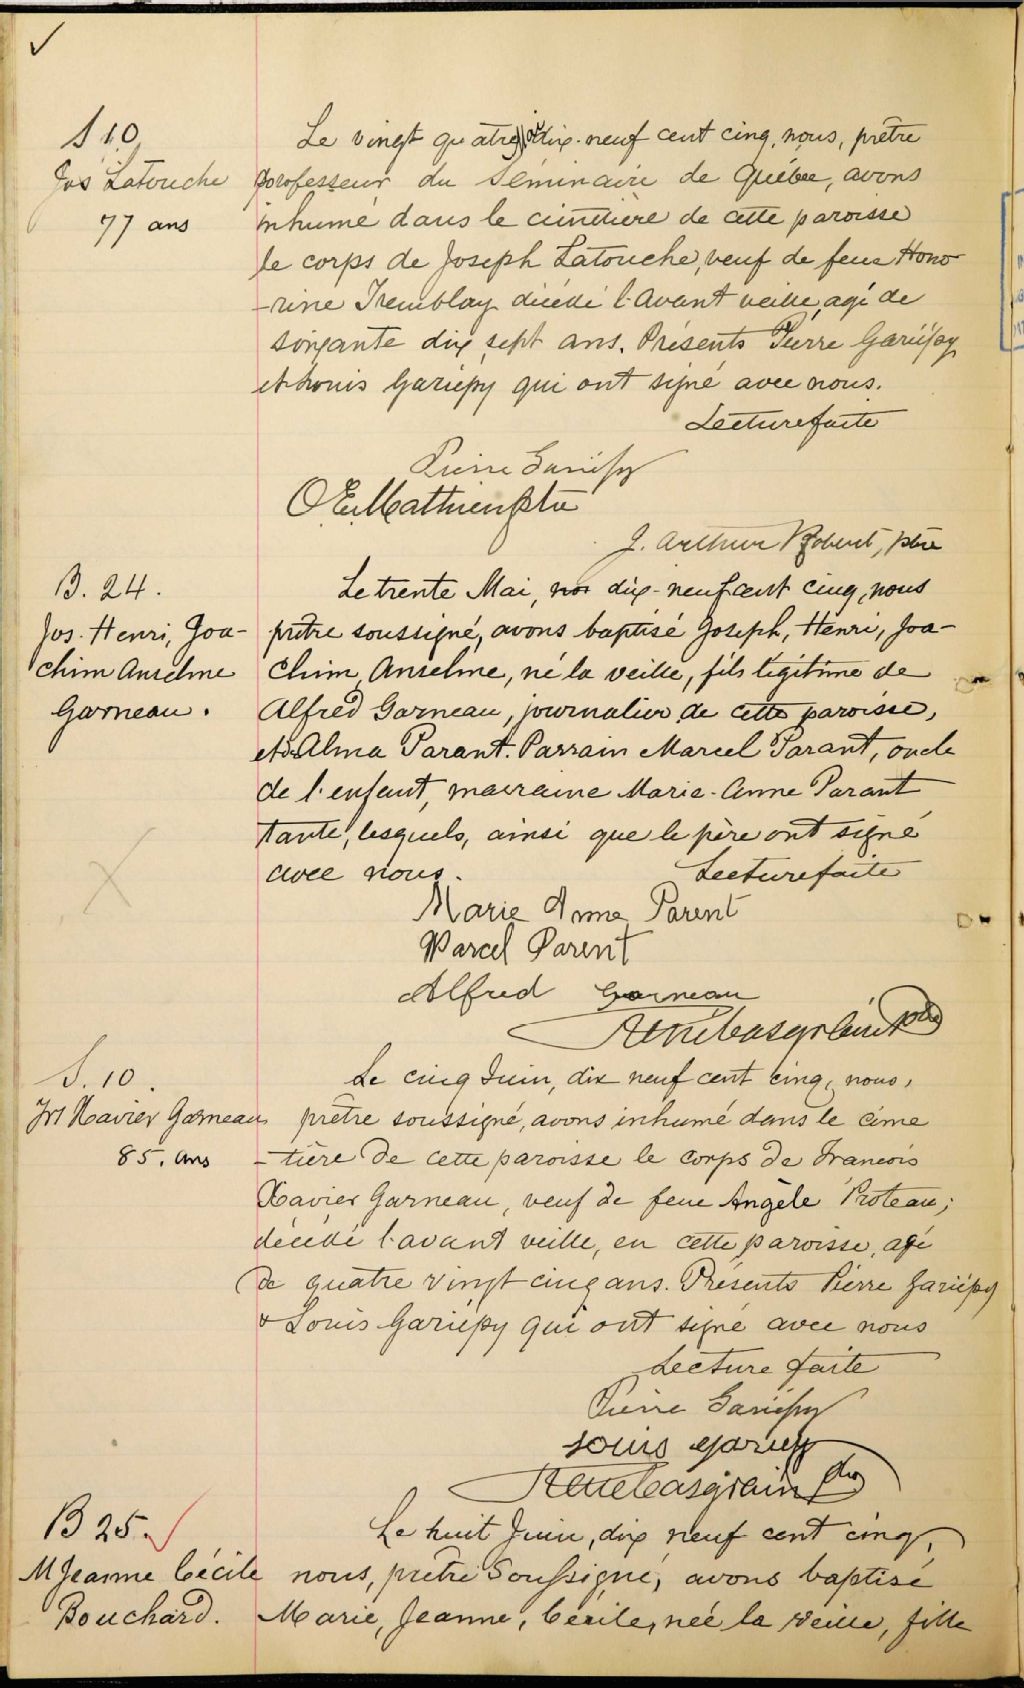 S 10
Jos Latouche
77 ans
Le vingt quatre dix-neuf cent cinq, nous, prêtre
professeur du Séminaire de Québec, avons
inhumé dans le cimetière de cette paroisse
le corps de Joseph Latouche, veuf de feue Hono
-rine Tremblay décédé l'avant veille, agé de
soixante dix sept ans. Présents Pierre Gariépy
et Louis Gariépy qui ont signé avec nous.
Lecture faite
Pierre Gariépy
O E. Mathieu Ptre
J. Arthur Robert, ptre
B. 24.
Jos. Henri, Joa-
chim Anselme
Garneau.
Le trente Mai, dix-neuf cent cinq, nous
prêtre soussigné, avons baptisé Joseph, Henri, Joa-
chim, Anselme, né la veille, fils légitime de
Alfred Garneau, journalier de cette paroisse,
et d'Alma Parant. Parrain Marcel Parant, oncle
de l'enfant, marraine Marie-Anne Parant
tante, lesquels, ainsi que le père ont signé
avec nous. Lecture faite
Marie Anne Parent
Marcel Parent
Alfred Garneau
René Casgrain ptre
S. 10.
Frs Xavier Garneau
85. ans
Le cinq Juin, dix neuf cent cinq, nous,
prêtre soussigné, avons inhumé dans le cime
-tière de cette paroisse le corps de Francois
Xavier Garneau, veuf de feue Angèle Proteau;
décédé l'avant veille, en cette paroisse, agé
de quatre vingt cinq ans. Présents Pierre Gariépy
& Louis Gariépy qui ont signé avec nous
Lecture faite
Pierre Gariépy
Louis Gariépy
René Casgrain ptre
B 25.
M Jeanne Cécile
Bouchard.
Le huit Juin, dix neuf cent cinq,
nous, prêtre Soussigné, avons baptisé
Marie, Jeanne, Cécile, née la veille, fille